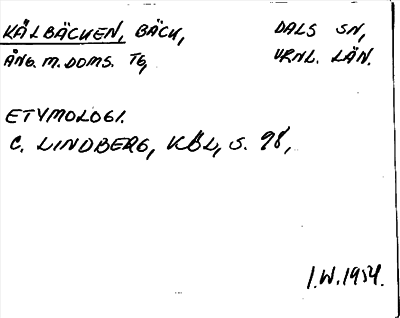 KÅLBÄCKEN, BÄCK, DALS SN,
ÅNG. M. DOMS. TG, VRNL. LÄN.
ETYMOLOGI.
C. LINDBERG, KBL, S. 98,
I.W. 1954.